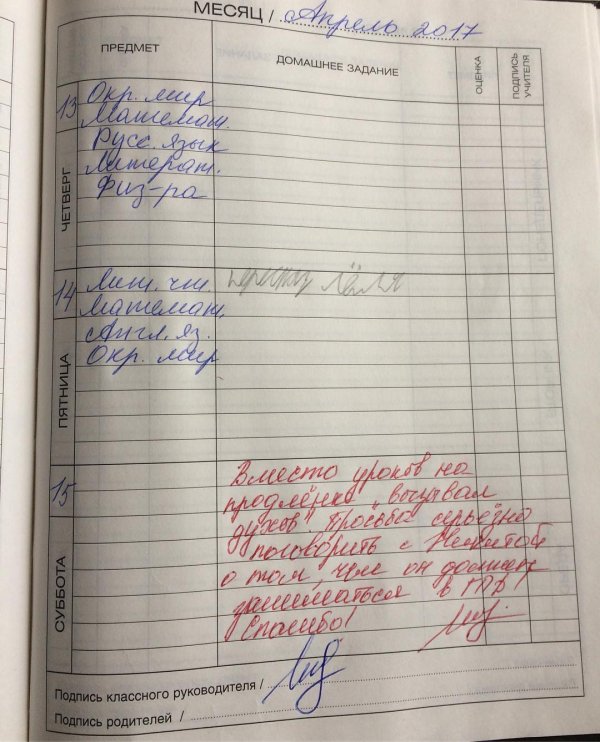 МЕСЯЦ / Апрель 2017
ПРЕДМЕТ
ДОМАШНЕЕ ЗАДАНИЕ
ОЦЕНКА
ПОДПИСЬ УЧИТЕЛЯ
13
ЧЕТВЕРГ
Окр. мир
Математ.
Русс. язык
Литерат.
Физ-ра
14
ПЯТНИЦА
Лит. чт. пересказ Лёля
Математ.
Англ. яз.
Окр. мир
15
СУББОТА
Вместо уроков на
продлёнке "вызывал
духов". Просьба серьёзно
поговорить с Никитой
о том, чем он должен
заниматься в ГПД!
Спасибо!
Подпись классного руководителя /
Подпись родителей /